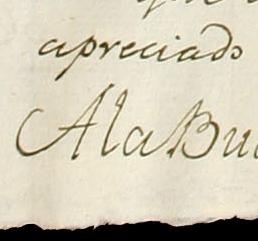 que
apreciado
A la Bu